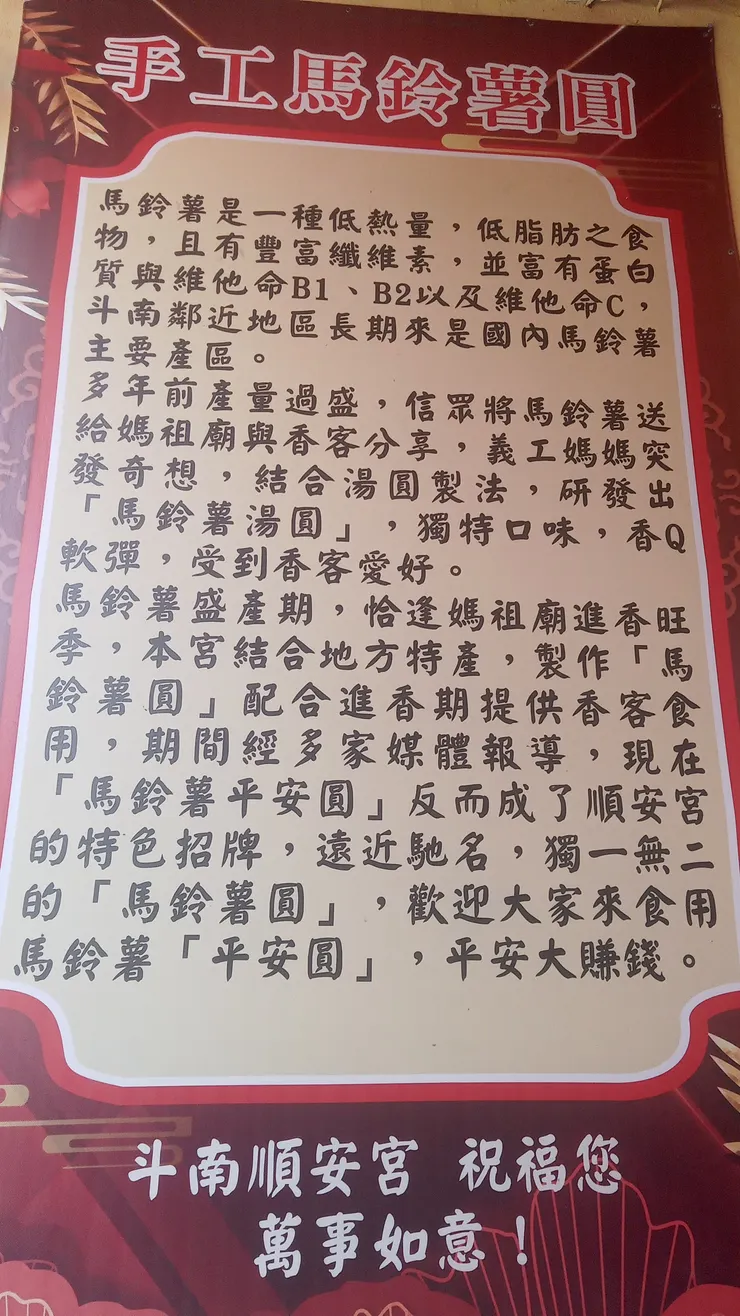 手工馬鈴薯圓
馬鈴薯是一種低熱量，低脂肪之食
物，且有豐富纖維素，並富有蛋白
質與維他命B1、B2以及維他命C，
斗南鄰近地區長期來是國內馬鈴薯
主要產區。
多年前產量過盛，信眾將馬鈴薯送
給媽祖廟與香客分享，義工媽媽突
發奇想，結合湯圓製法，研發出
「馬鈴薯湯圓」，獨特口味，香Q
軟彈，受到香客愛好。
馬鈴薯盛產期，恰逢媽祖廟進香旺
季，本宮結合地方特產，製作「馬
鈴薯圓」配合進香期提供香客食
用，期間經多家媒體報導，現在
「馬鈴薯平安圓」反而成了順安宮
的特色招牌，遠近馳名，獨一無二
的「馬鈴薯圓」，歡迎大家來食用
馬鈴薯「平安圓」，平安大賺錢。
斗南順安宮 祝福您
萬事如意！